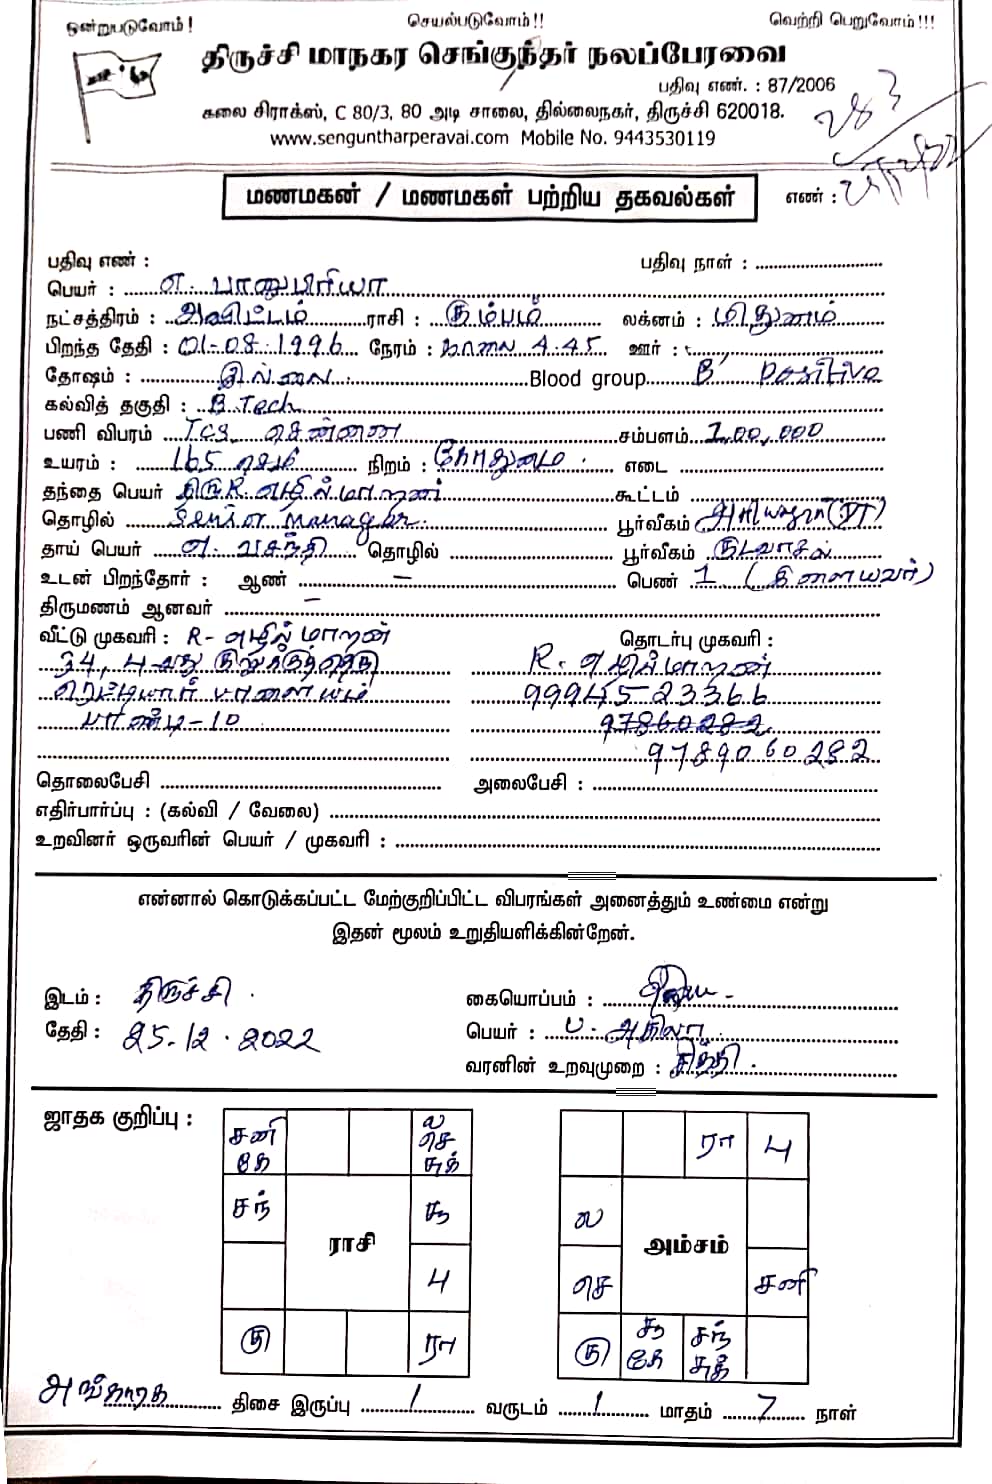 ஒன்றுபடுவோம் ! செயல்படுவோம்!! வெற்றி பெறுவோம்!!!
திருச்சி மாநகர செங்குந்தர் நலப்பேரவை
பதிவு எண். : 87/2006
கலை சிராக்ஸ், C 80/3, 80 அடி சாலை, தில்லைநகர், திருச்சி 620018.
www.senguntharperavai.com Mobile No. 9443530119
மணமகன் / மணமகள் பற்றிய தகவல்கள் எண் :
பதிவு எண் : பதிவு நாள் :
பெயர் : எ. பானுபிரியா
நட்சத்திரம் : அவிட்டம் ராசி : கும்பம் லக்னம் : மிதுனம்
பிறந்த தேதி : 01-08-1996 நேரம் : காலை 4.45 ஊர் :
தோஷம் : இல்லை Blood group B' Positive
கல்வித் தகுதி : B.Tech
பணி விபரம் TCS சென்னை சம்பளம் 1,00,000
உயரம் : 165 செமி நிறம் : கோதுமை எடை
தந்தை பெயர் திரு R. எழில்மாறன் கூட்டம்
தொழில் Senior Manager பூர்வீகம் (DT)
தாய் பெயர் எ. வசந்தி தொழில் பூர்வீகம் குடவாசல்
உடன் பிறந்தோர் : ஆண் – பெண் 1 (இளையவர்)
திருமணம் ஆனவர் –
வீட்டு முகவரி : R- எழில் மாறன் தொடர்பு முகவரி :
34, 4-வது R. எழில்மாறன்
ரெட்டியார் பாளையம் 99945 23366
பாண்டி-10 97860282
9789060282
தொலைபேசி அலைபேசி :
எதிர்பார்ப்பு : (கல்வி / வேலை)
உறவினர் ஒருவரின் பெயர் / முகவரி :
என்னால் கொடுக்கப்பட்ட மேற்குறிப்பிட்ட விபரங்கள் அனைத்தும் உண்மை என்று
இதன் மூலம் உறுதியளிக்கின்றேன்.
இடம் : திருச்சி . கையொப்பம் :
தேதி : 25.12.2022 பெயர் : ப. அகிலா
வரனின் உறவுமுறை : சித்தி .
ஜாதக குறிப்பு :
சனி கே ல செ சுக் ரா பு
சந் சூ ல
ராசி அம்சம்
பு செ சனி
குரு ரா குரு சூ கே சந் சுக்
அங்காரக திசை இருப்பு 1 வருடம் 1 மாதம் 7 நாள்